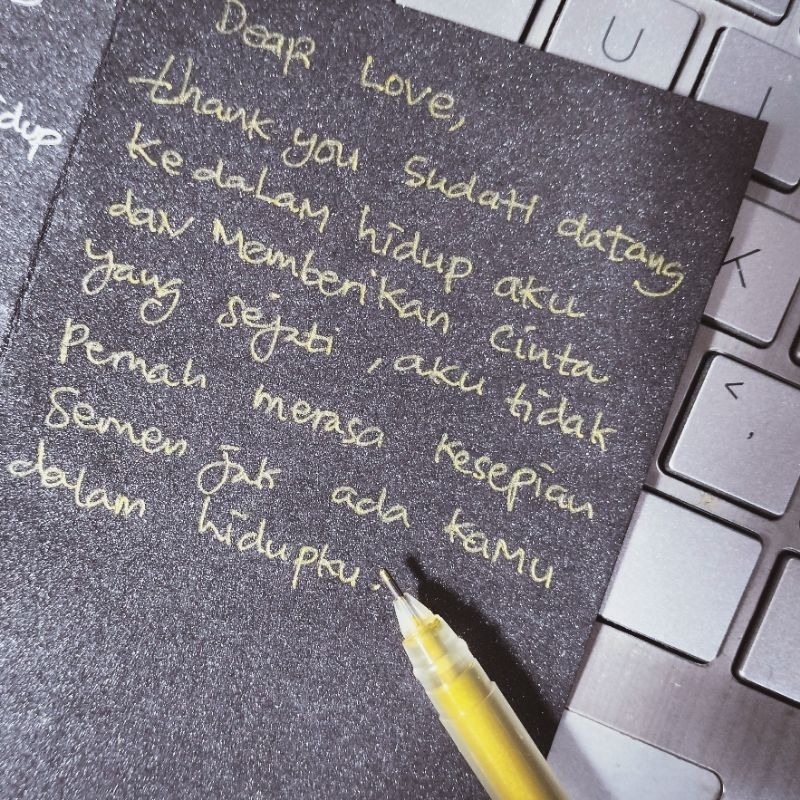 Dear Love,
thank you sudah datang
ke dalam hidup aku
dan memberikan cinta
yang sejati, aku tidak
pernah merasa kesepian
semen jak ada kamu
dalam hidupku.
idup
U
K
<
,